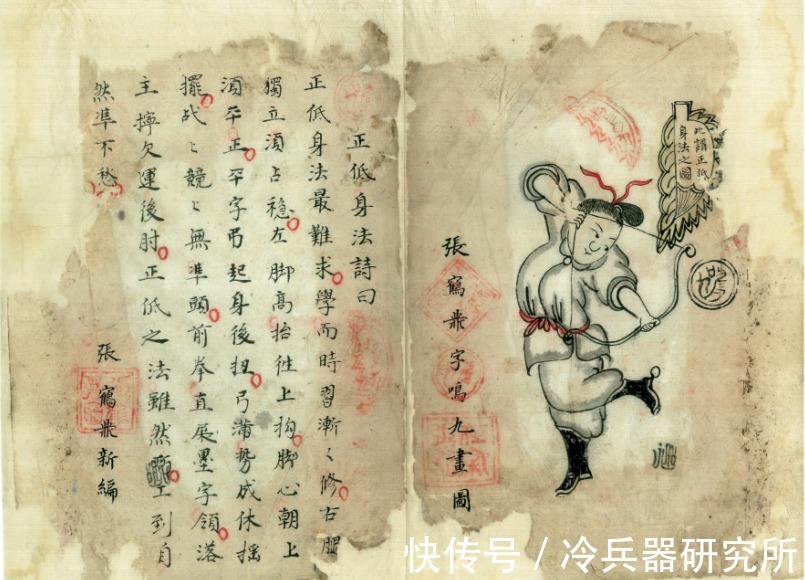 此講正低
身法之圖
張鶴鼎字鳴九畫圖
正低身法詩曰
正低身法最難求學而時習漸々修右腿
獨立須占穩左脚高抬徃上抅脚心朝上
須平正平字弔起身後扭弓滿勢成休搖
擺战々競々無準頭前拳直展墨字領落
主擰欠運後肘正低之法雖然工到自
然準不愁
張鶴鼎新編
快传号 / 冷兵器研究所